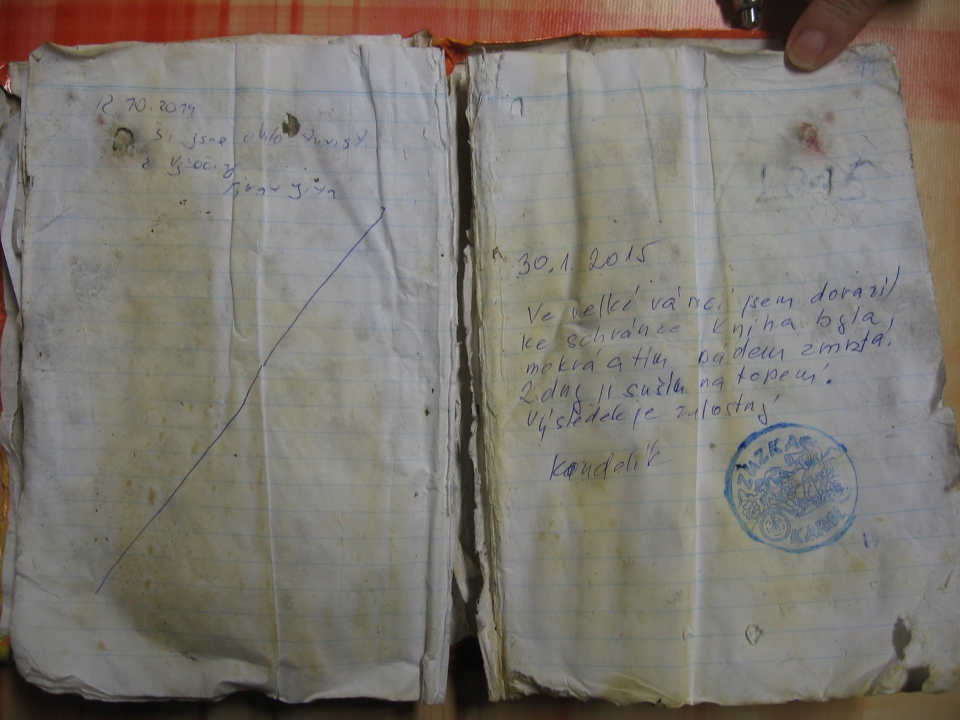 10.2014
jsme
2015
30.1.2015
Ve velké vánici jsem dorazil
ke schránce kniha byla
mokrá a tím pádem zmrzlá.
2 dny ji suším na topení.
Výsledek je žalostný
Kondelík
ZUZKA
KAREL